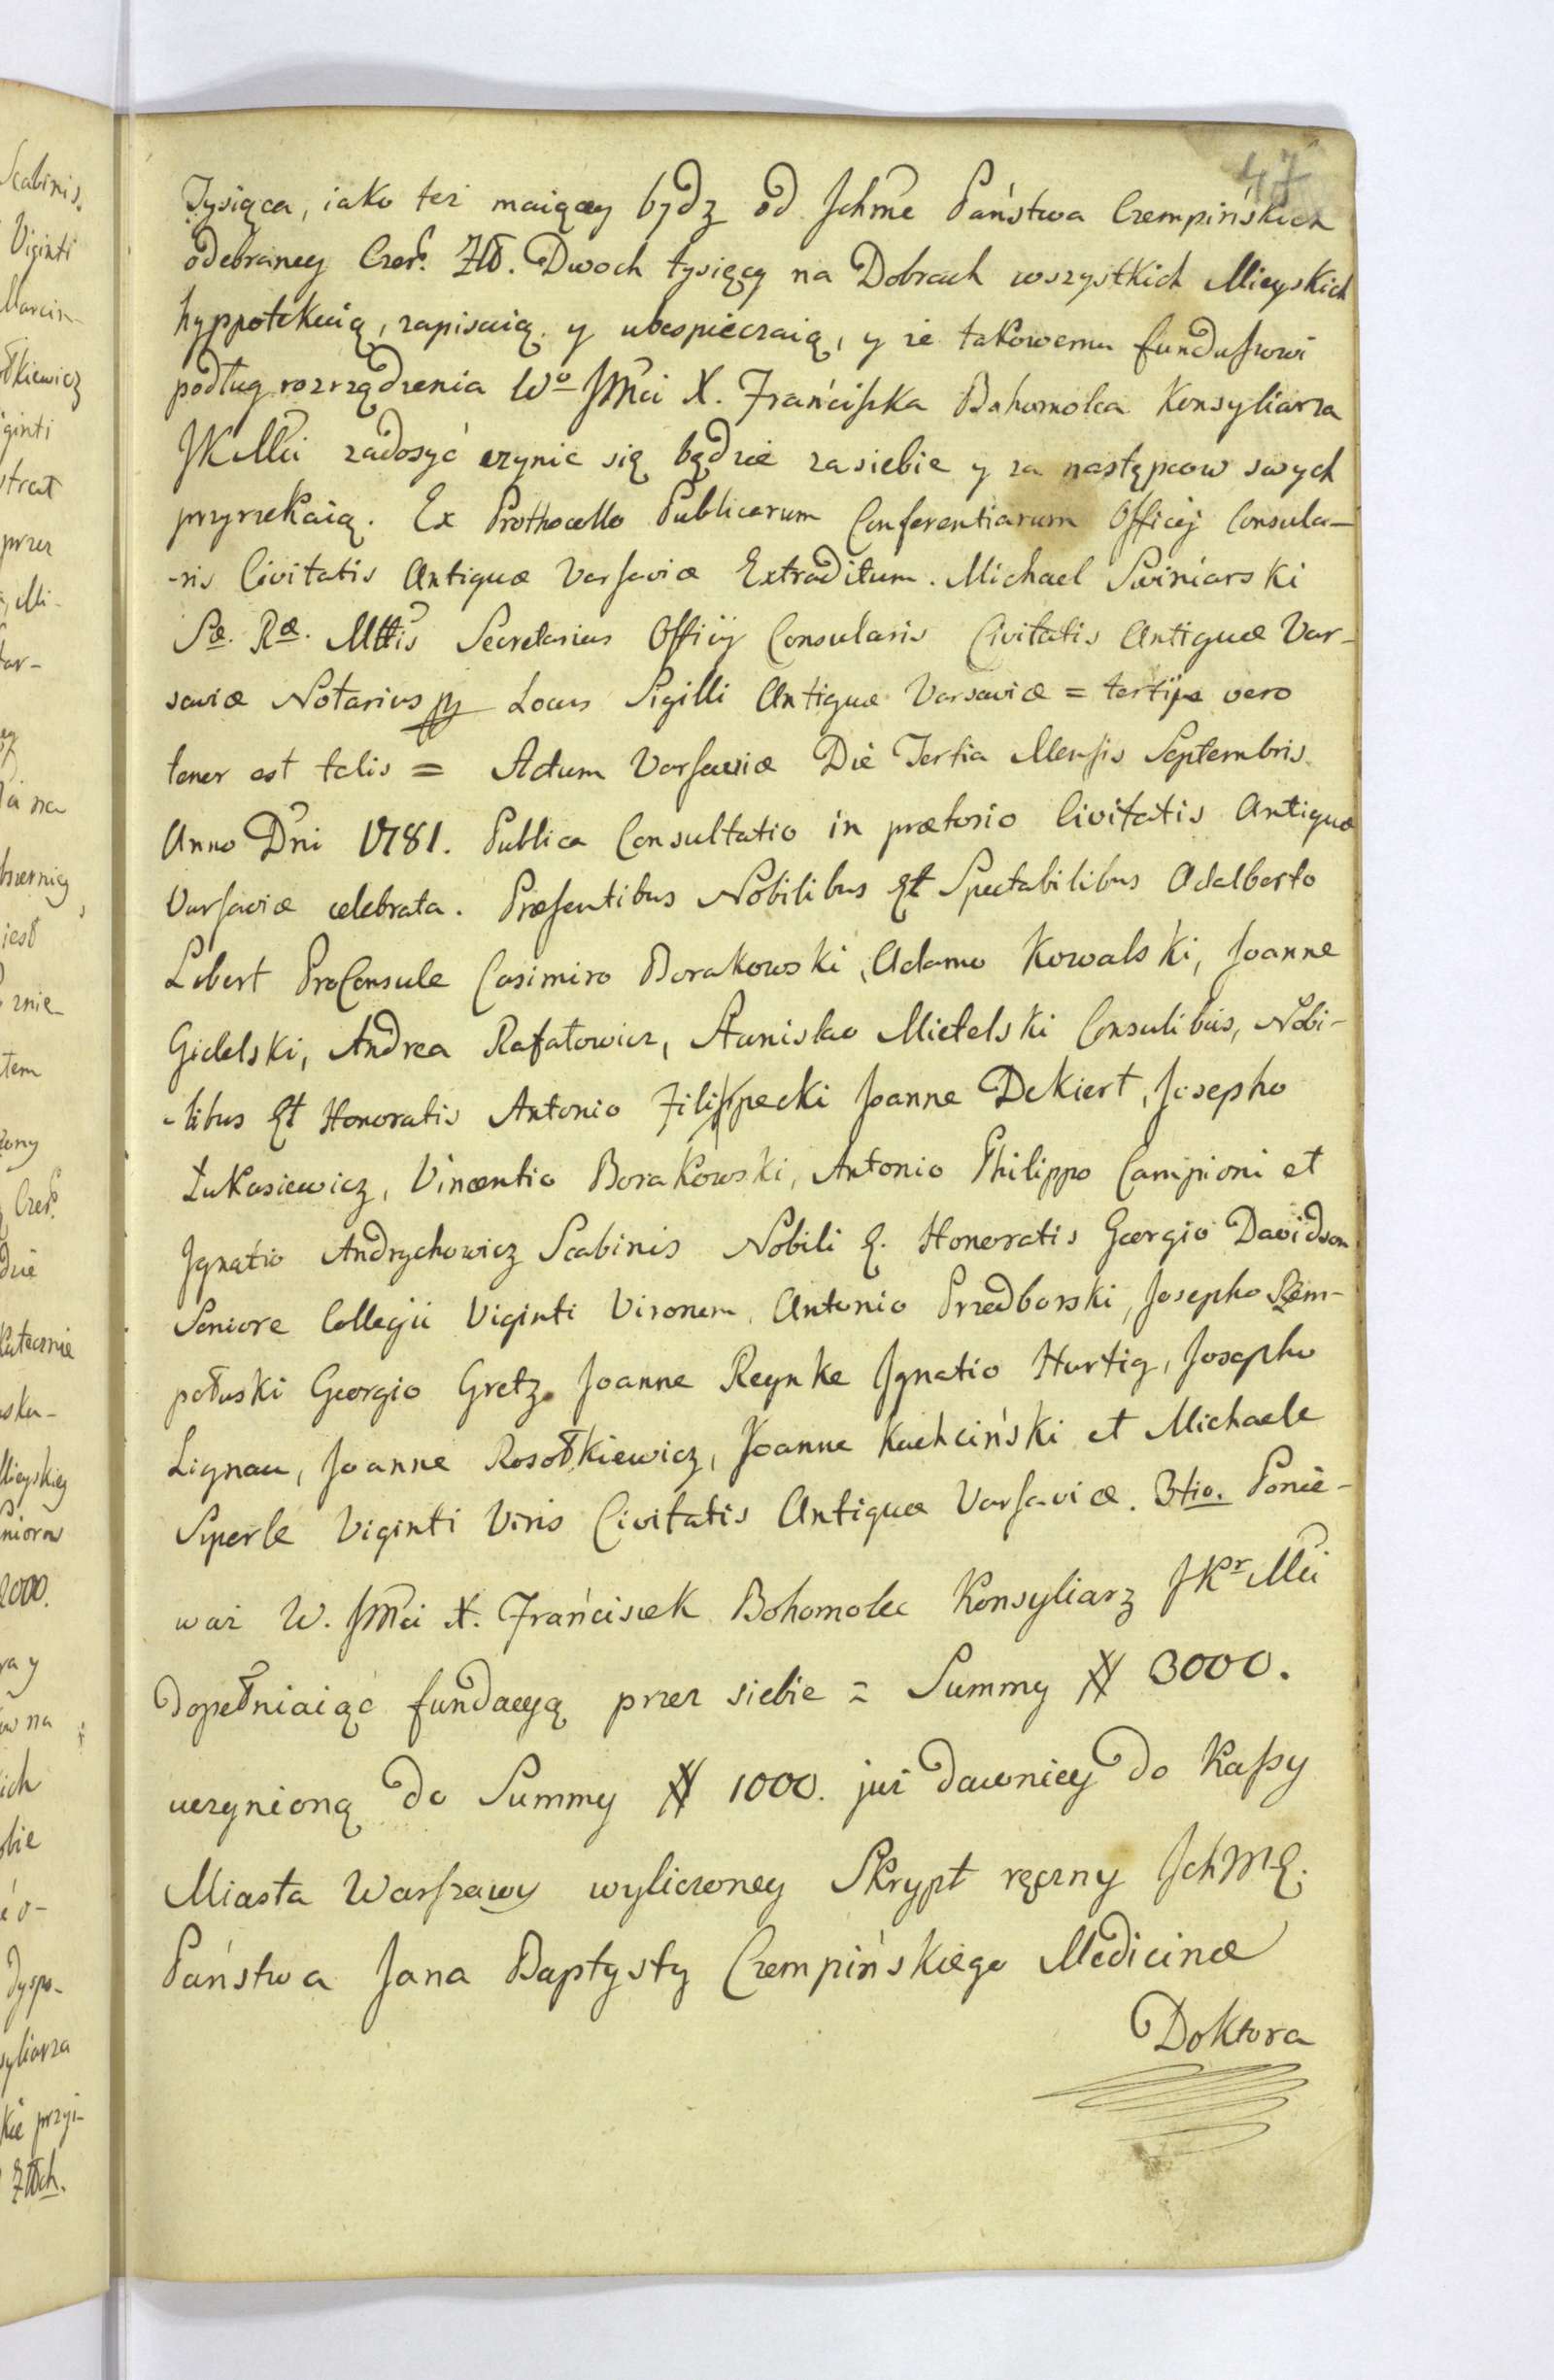 47
Tysiąca, iako też maiącey bydz od Jchmc Państwa Czempińskich
odebraney Czer. Złł. Dwoch tysięcy na Dobrach wszystkich Mieyskich
hyppotekuią, zapisuią y ubespieczaią, y że takowemu funduszowi
podług rozrządzenia Wo JMci X. Franciszka Bohomolca Konsyliarza
JKMci zadosyć czynić się będzie za siebie y za następcow swych
przyrzekaią. Ex Prothocollo Publicarum Conferentiarum Officij Consula-
-ris Civitatis Antiquæ Varsaviæ Extraditum. Michael Swiniarski
Sæ. Ræ. Mttis Secretarius Officij Consularis Civitatis Antiquæ Var-
saviæ Notarius mp Locus Sigilli Antiquæ Varsaviæ = tertije vero
tenor est talis = Actum Varsaviæ Die Tertia Mensis Septembris
Anno Dni 1781. Publica Consultatio in prætorio Civitatis Antiquæ
Varsaviæ celebrata. Præsentibus Nobilibus Et Spectabilibus Adalberto
Lobert ProConsule Casimiro Borakowski, Adamo Kowalski, Joanne
Gidelski, Andrea Rafałowicz, Stanislao Mietelski Consulibus, Nobi-
-libus Et Honoratis Antonio Filippecki Joanne Dekiert, Josepho
Łukasiewicz, Vincentio Borakowski, Antonio Philippo Campioni et
Jgnatio Andrychowicz Scabinis Nobili E. Honoratis Georgio Davidson
Seniore Collegii Viginti Virorum, Antonio Przedborski, Josepho Rem-
połuski Georgio Gretz Joanne Reynke Jgnatio Hurtig, Josepho
Lignau, Joanne Rosołkiewicz, Joanne Kuchciński et Michaele
Sperle Viginti Viris Civitatis Antiquæ Varsaviæ. 3tio. Ponie-
waż W. JMci X. Franciszek Bohomolec Konsyliarz JKr Mci
Dopełniaiąć fundacyą przez siebie = Summy # 3000.
uczynioną do Summy # 1000. już dawniey do Kassy
Miasta Warszawy wyliczoney Skrypt ręczny JchMC.
Państwa Jana Baptysty Czempińskiego Medicinæ
Doktora